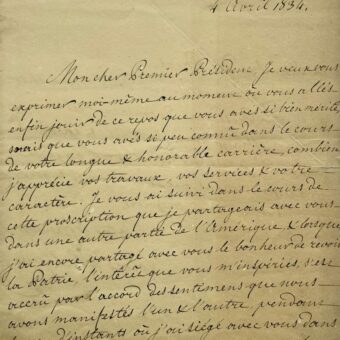 4 Avril 1834.
Mon cher Premier Président Je veux vous
exprimer moi-même au moment où vous allés
enfin jouir de ce repos que vous avés si bien mérité
mais que vous avés si peu connu dans le cours
de votre longue & honorable carrière, combien
j'apprécie vos travaux, vos services & votre
caractère. Je vous ai suivi dans le cours de
cette proscription que je partageais avec vous
dans une autre partie de l'Amérique, & lorsque
j'ai encore partagé avec vous le bonheur de revoir
la Patrie, l'intérêt que vous m'inspiriés, s'est
accru par l'accord des sentemens que nous
avons manifestés l'un & l'autre, pendant
d'instants où j'ai siégé avec vous dans